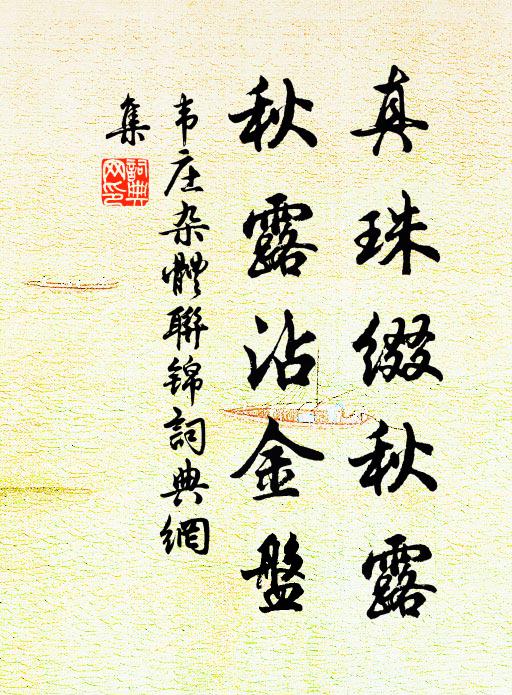 真珠缀秋露
秋露沾金盤
韦庄杂體聯锦詞典網
集
詞典
网印